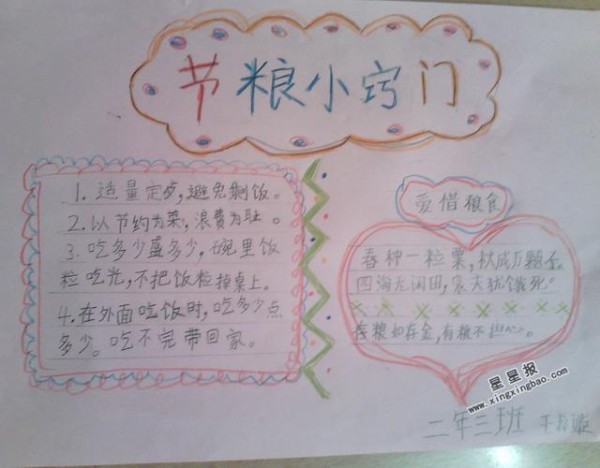 节粮小窍门
1. 适量定歺,避免剩饭。
2. 以节约为荣,浪费为耻。
3. 吃多少盛多少,碗里饭
粒吃光,不把饭粒掉桌上。
4. 在外面吃饭时,吃多少点
多少。吃不完带回家。
爱惜粮食
春种一粒粟,秋成万颗子。
四海无闲田,农夫犹饿死。
存粮如存金,有粮不
星星报
www.xingxingbao.com
二年三班